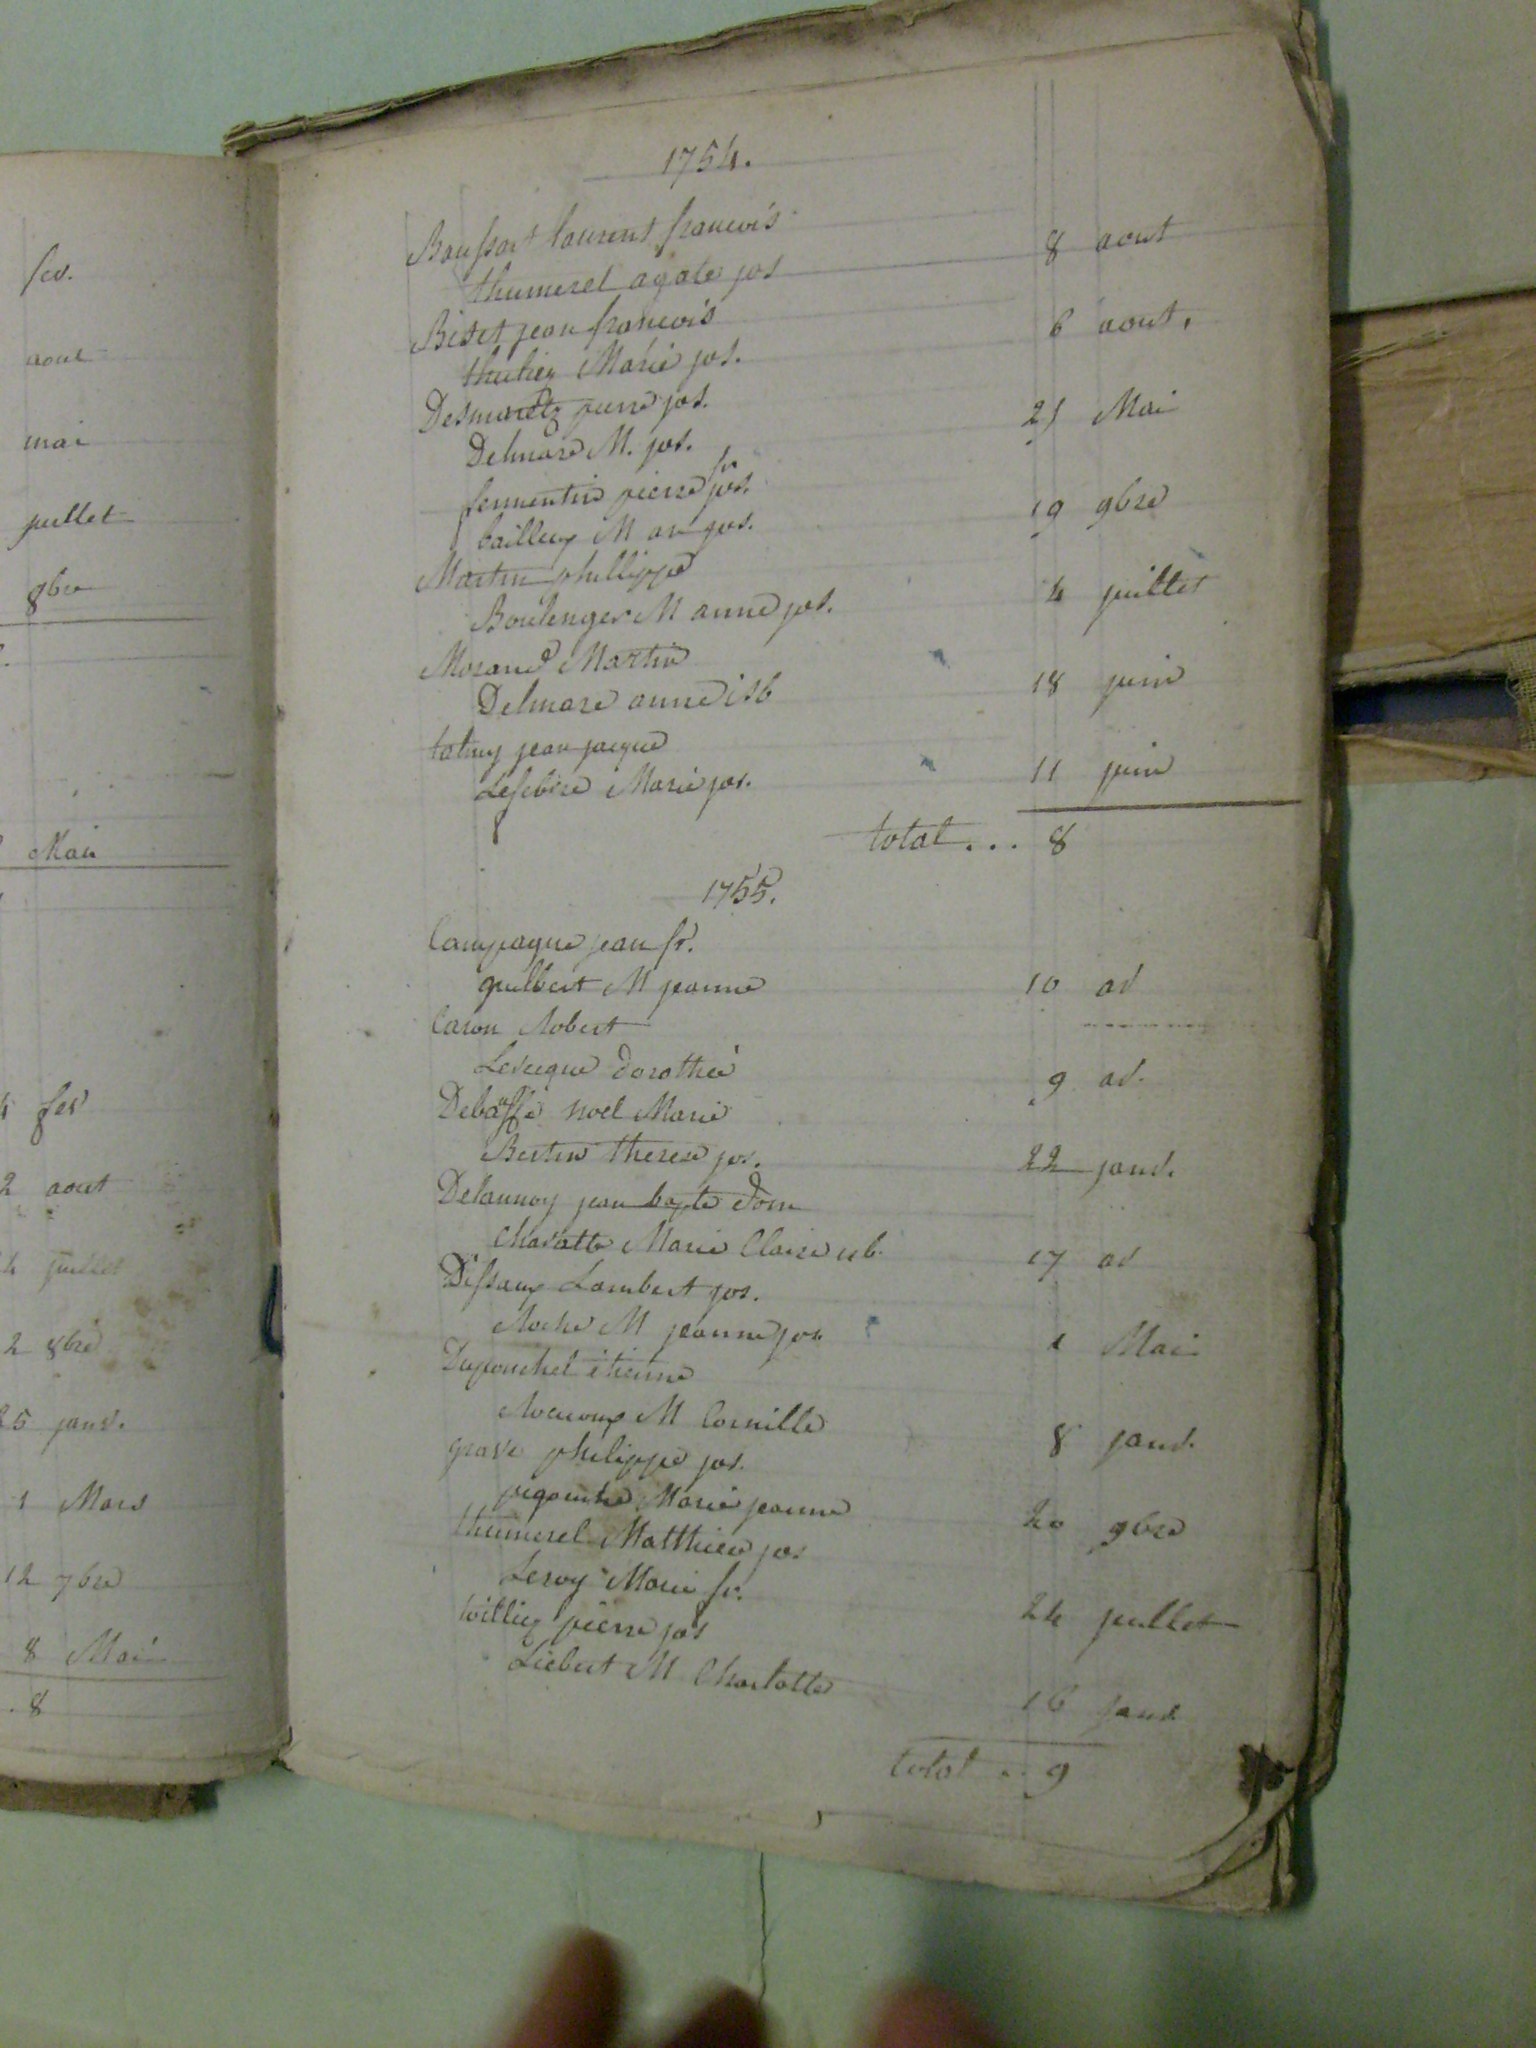 fev.
aout
mai
juillet
9bre
Mai
fev
2 aout
4 juillet
2 8bre
25 janv.
1 Mars
12 7bre
8 Mai
. 8
1754.
Boussart laurent francois
thumerel agate jos 8 aout
Bidet jean francois
thuliez Marie jos. 6 aout,
Desmaretz pierre jos.
Delmare M. jos. 21 Mai
fermentin pierre fr jos.
bailleux M an jos. 19 9bre
Martin phillippe
Boulenger M anne jos. 4 juillet
Morand Martin
Delmare anne isb 18 juin
talmy jean jacque
Lefebvre Marie jos. 11 juin
total ... 8
1755.
Campagne jean fr.
guilbert M jeanne 10 av
Caron Robert
Levecque dorothée 9 av.
Debaussé noel Marie
Bertin therese jos. 22 janv.
Delannoy jean bapte dom
Charatte Marie Claire isb 17 av
Dissaux Lambert jos.
Roche M jeanne jos 1 Mai
Dupouchel étienne
M Cornille 8 janv.
grave philippe jos.
Marie jeanne 20 9bre
thumerel Matthieu jos
Leroy Marie fr. 24 juillet
Williez pierre jos
Liebert M Charlotte 16 janv.
total .. 9